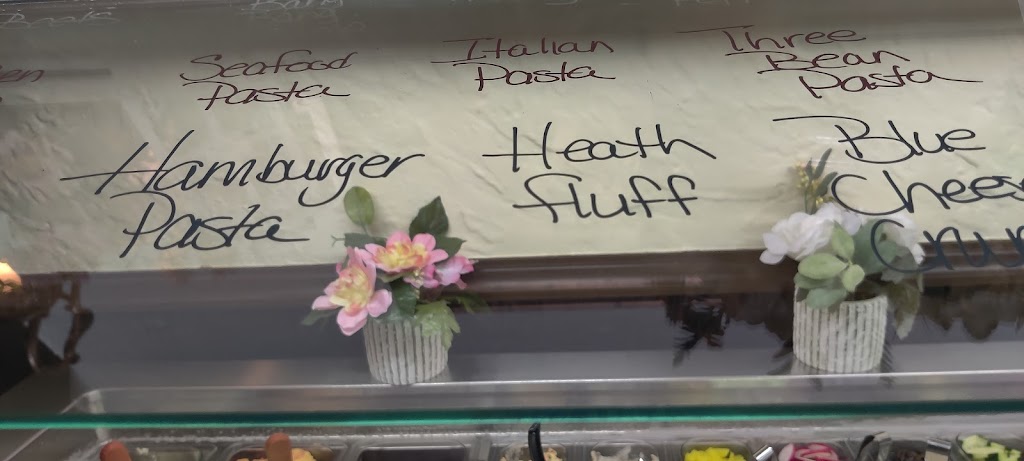 Seafood
Pasta
Italian
Pasta
Three
Bean
Pasta
Hamburger
Pasta
Heath
fluff
Blue